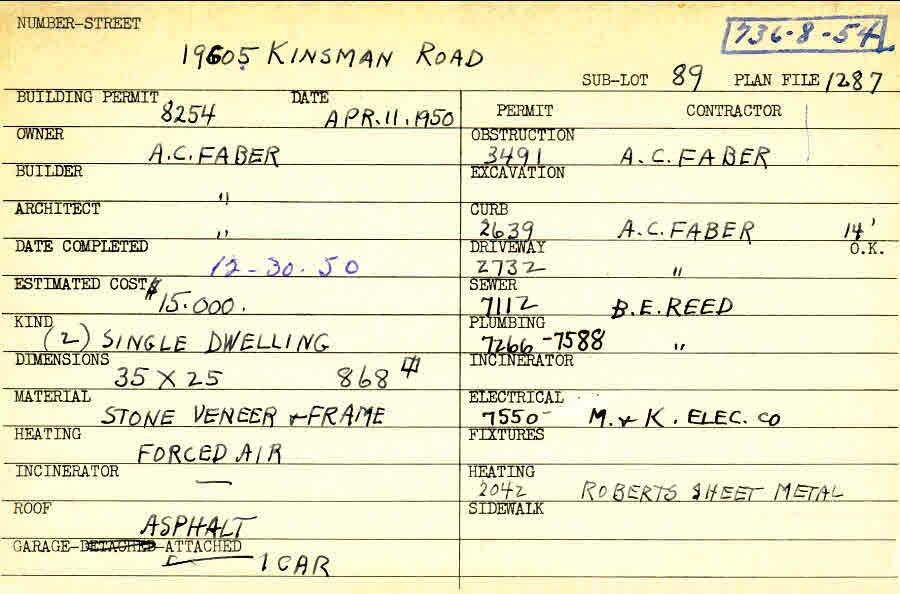 NUMBER-STREET
736-8-54
19605 KINSMAN ROAD
SUB-LOT 89 PLAN FILE 1287
BUILDING PERMIT DATE
8254 APR. 11, 1950
OWNER
A.C. FABER
BUILDER
"
ARCHITECT
"
DATE COMPLETED
12-30-50
ESTIMATED COST $
15.000.
KIND
(2) SINGLE DWELLING
DIMENSIONS
35 X 25 868
MATERIAL
STONE VENEER + FRAME
HEATING
FORCED AIR
INCINERATOR
—
ROOF
ASPHALT
GARAGE-DETACHED-ATTACHED
1 CAR
PERMIT CONTRACTOR
OBSTRUCTION
3491 A.C. FABER
EXCAVATION
CURB
2639 A.C. FABER 14'
DRIVEWAY O.K.
2732 "
SEWER
7112 B.E. REED
PLUMBING
7266-7588 "
INCINERATOR
ELECTRICAL
7550 M. + K. ELEC. CO
FIXTURES
HEATING
2042 ROBERTS SHEET METAL
SIDEWALK